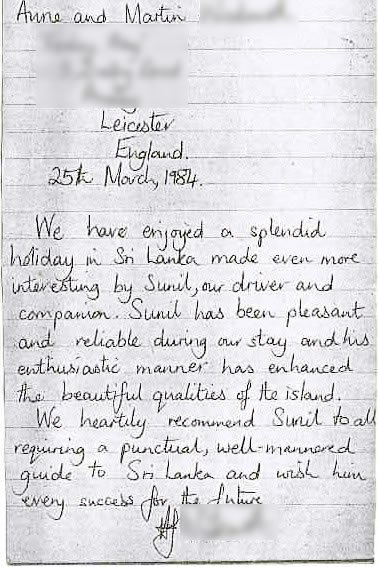 Anne and Martin
Leicester
England.
25th March, 1984.
We have enjoyed a splendid
holiday in Sri Lanka made even more
interesting by Sunil, our driver and
companion. Sunil has been pleasant
and reliable during our stay and his
enthusiastic manner has enhanced
the beautiful qualities of the island.
We heartily recommend Sunil to all
requiring a punctual, well-mannered
guide to Sri Lanka and wish him
every success for the future